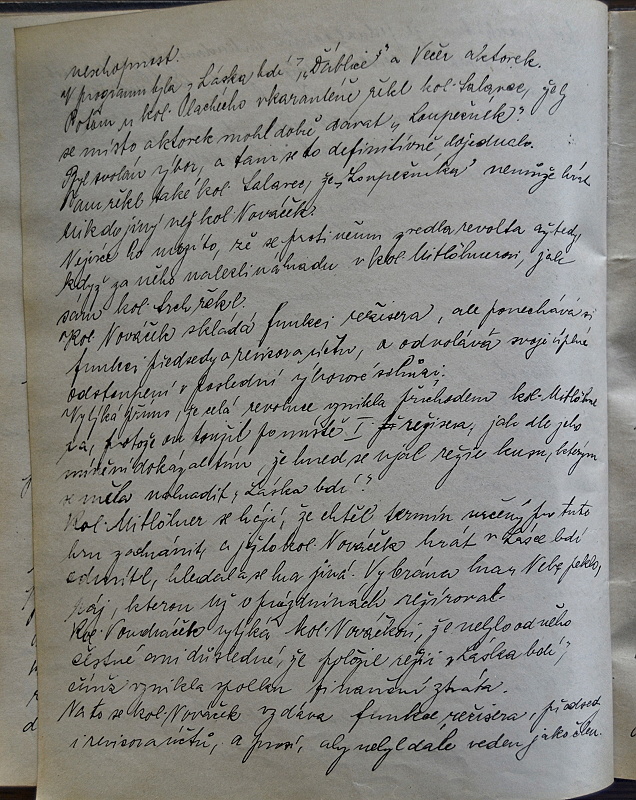 neschopnost.
V programu byla „Láska bdí”, „Ďáblice” a Večer aktorek.
Potom u kol. Plachého v karanteně řekl kol. Salavec, že by
se místo aktorek mohl dobře dávat „Loupežník”.
Byl svolán výbor, a tam se to definitivně dojednalo.
Tam řekl také kol. Salavec, že „Loupežníka” nemůže hrát
nikdo jiný než kol. Nováček.
Nejvíce ho mrzí to, že se proti němu zvedla revolta až tedy,
když za něho nalezli náhradu v kol. Mitlöhnerovi, jak
sám kol. řekl.
Kol. Nováček skládá funkci režisera, ale ponechává si
funkci předsedy a revisora účtu, a odvolává svoje úplné
odstoupení v poslední výborové schůzi.
Vytýká přímo, že celá revoluce vznikla příchodem kol. Mitlöhne
ra, protože on toužil po místě I. režisera, jak dle jeho
mínění dokázal tím, že hned se ujal režie kusu, kterým
se měla nahradit „Láska bdí”.
Kol. Mitlöhner se hájí, že chtěl termín určený pro tuto
hru zachránit, a jéžto kol. Nováček hrát v Lásce bdí
odmítl, hledala se hra jiná. Vybrána hra „Nebe, peklo,
ráj, kterou už o prázdninách režíroval.
Kol. Vondráček vytýká kol. Nováčkovi, že nebylo od něho
čestné ani důsledné, že položil režii „Láska bdí”,
čímž vznikla spolku finanční ztráta.
Na to se kol. Nováček vzdává funkce režisera, předsed
i revisora účtů, a prosí, aby nebyl dále veden jako člen.